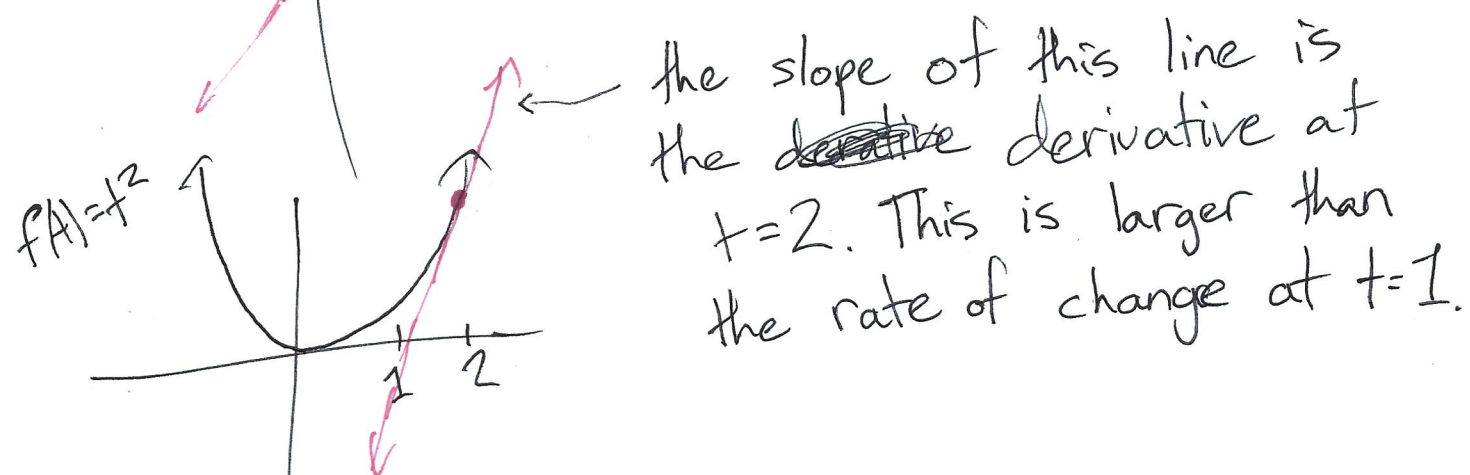 the slope of this line is
the derivative at
t=2. This is larger than
the rate of change at t=1.
f(t)=t²
1 2